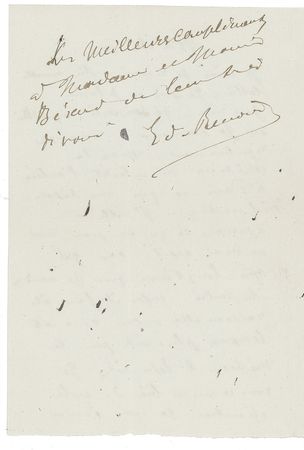 Les Meilleurs Compliments
à Madame et Mons
Bérend de leur très
dévoué Ed. Renoir